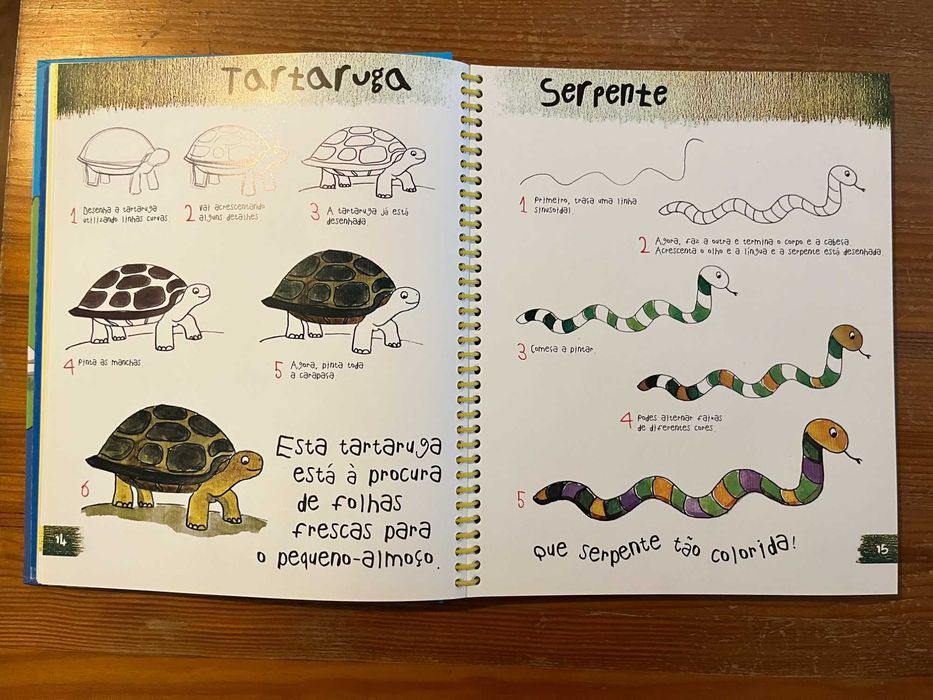 Tartaruga
1 Desenha a tartaruga
utilizando linhas curvas.
2 Vai acrescentando
alguns detalhes.
3 A tartaruga já está
desenhada.
4 Pinta as manchas.
5 Agora, pinta toda
a carapaça.
6
Esta tartaruga
está à procura
de folhas
frescas para
o pequeno-almoço.
14
Serpente
1 Primeiro, traça uma linha
sinusoidal.
2 Agora, faz a outra e termina o corpo e a cabeça.
Acrescenta o olho e a língua e a serpente está desenhada.
3 Começa a pintar.
4 Podes alternar faixas
de diferentes cores.
5
Que serpente tão colorida!
15